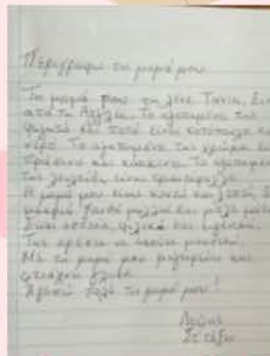 Περιγράφω τη μαμά μου
Τη μαμά μου τη λένε Τάνια. Είναι
από τη Λετονία. Το αγαπημένο της
φαγητό και ποτό είναι κοτόπουλο και
νερό. Το αγαπημένο της χρώμα είναι
πράσινο και κόκκινο. Το αγαπημένο
της λουλούδι είναι τριαντάφυλλο.
Η μαμά μου είναι κοντή και λεπτή,
μακριά ξανθά μαλλιά και μπλε μάτια.
Είναι αστεία, φιλική και ευγενική.
Της αρέσει να ακούει μουσική.
Με τη μαμά μου μαγειρεύω και
φτιάχνω γλυκά.
Αγαπώ πολύ τη μαμά μου!
Στ' τάξη